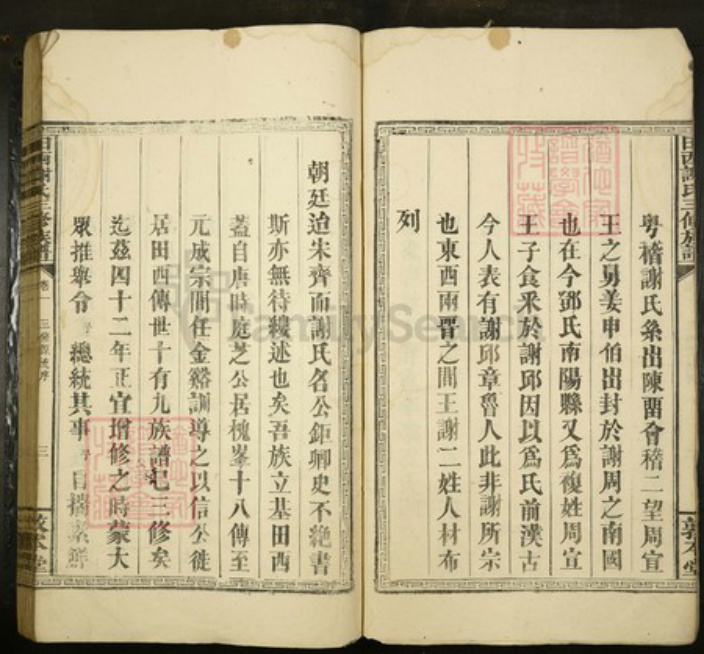 粤稽謝氏系出陳畱會稽二望周宣
王之舅姜申伯出封於謝周之南國
也在今鄧氏南陽縣又爲複姓周宣
王子食釆於謝邱因以爲氏前漢古
今人表有謝邱章魯人此非謝所宗
也東西兩晋之間王謝二姓人材布
列
田西謝氏三修族譜
敦本堂
朝廷迨朱齊而謝氏名公鉅卿史不絶書
斯亦無待縷述也矣吾族立基田西
葢自唐時庭芝公居槐峯十八傳至
元成宗間任金谿訓導之以信公徙
居田西傳世十有九族譜巳三修矣
迄茲四十二年正宜增修之時蒙大
眾推舉令 總統其事 自揣鮮
田西謝氏三修族譜
卷一
三
敦本堂
FamilySearch